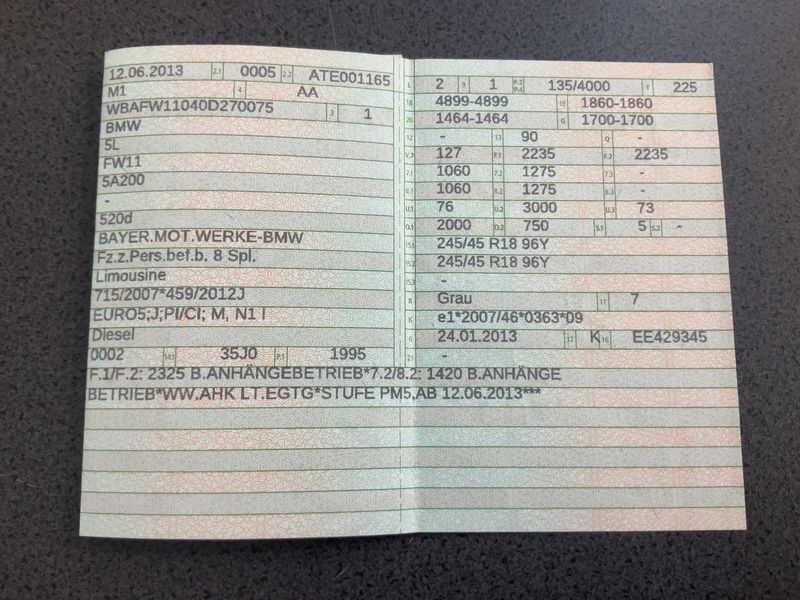 12.06.2013 2.1 0005 2.2 ATE001165
M1 4 AA
WBAFW11040D270075 3 1
BMW
5L
FW11
5A200
-
520d
BAYER.MOT.WERKE-BMW
Fz.z.Pers.bef.b. 8 Spl.
Limousine
715/2007*459/2012J
EURO5;J;PI/CI; M, N1 I
Diesel
0002 14.1 35J0 P.1 1995
L 2 9 1 P.2 P.4 135/4000 T 225
18 4899-4899 19 1860-1860
20 1464-1464 G 1700-1700
12 - 13 90 Q -
V.7 127 F.1 2235 F.2 2235
7.1 1060 7.2 1275 7.3 -
8.1 1060 8.2 1275 8.3 -
U.1 76 U.2 3000 U.3 73
O.1 2000 O.2 750 S.1 5 S.2 -
15.1 245/45 R18 96Y
15.2 245/45 R18 96Y
15.3 -
R Grau 11 7
K e1*2007/46*0363*09
6 24.01.2013 17 K 16 EE429345
21 -
F.1/F.2: 2325 B.ANHÄNGEBETRIEB*7.2/8.2: 1420 B.ANHÄNGE
BETRIEB*WW.AHK LT.EGTG*STUFE PM5,AB 12.06.2013***